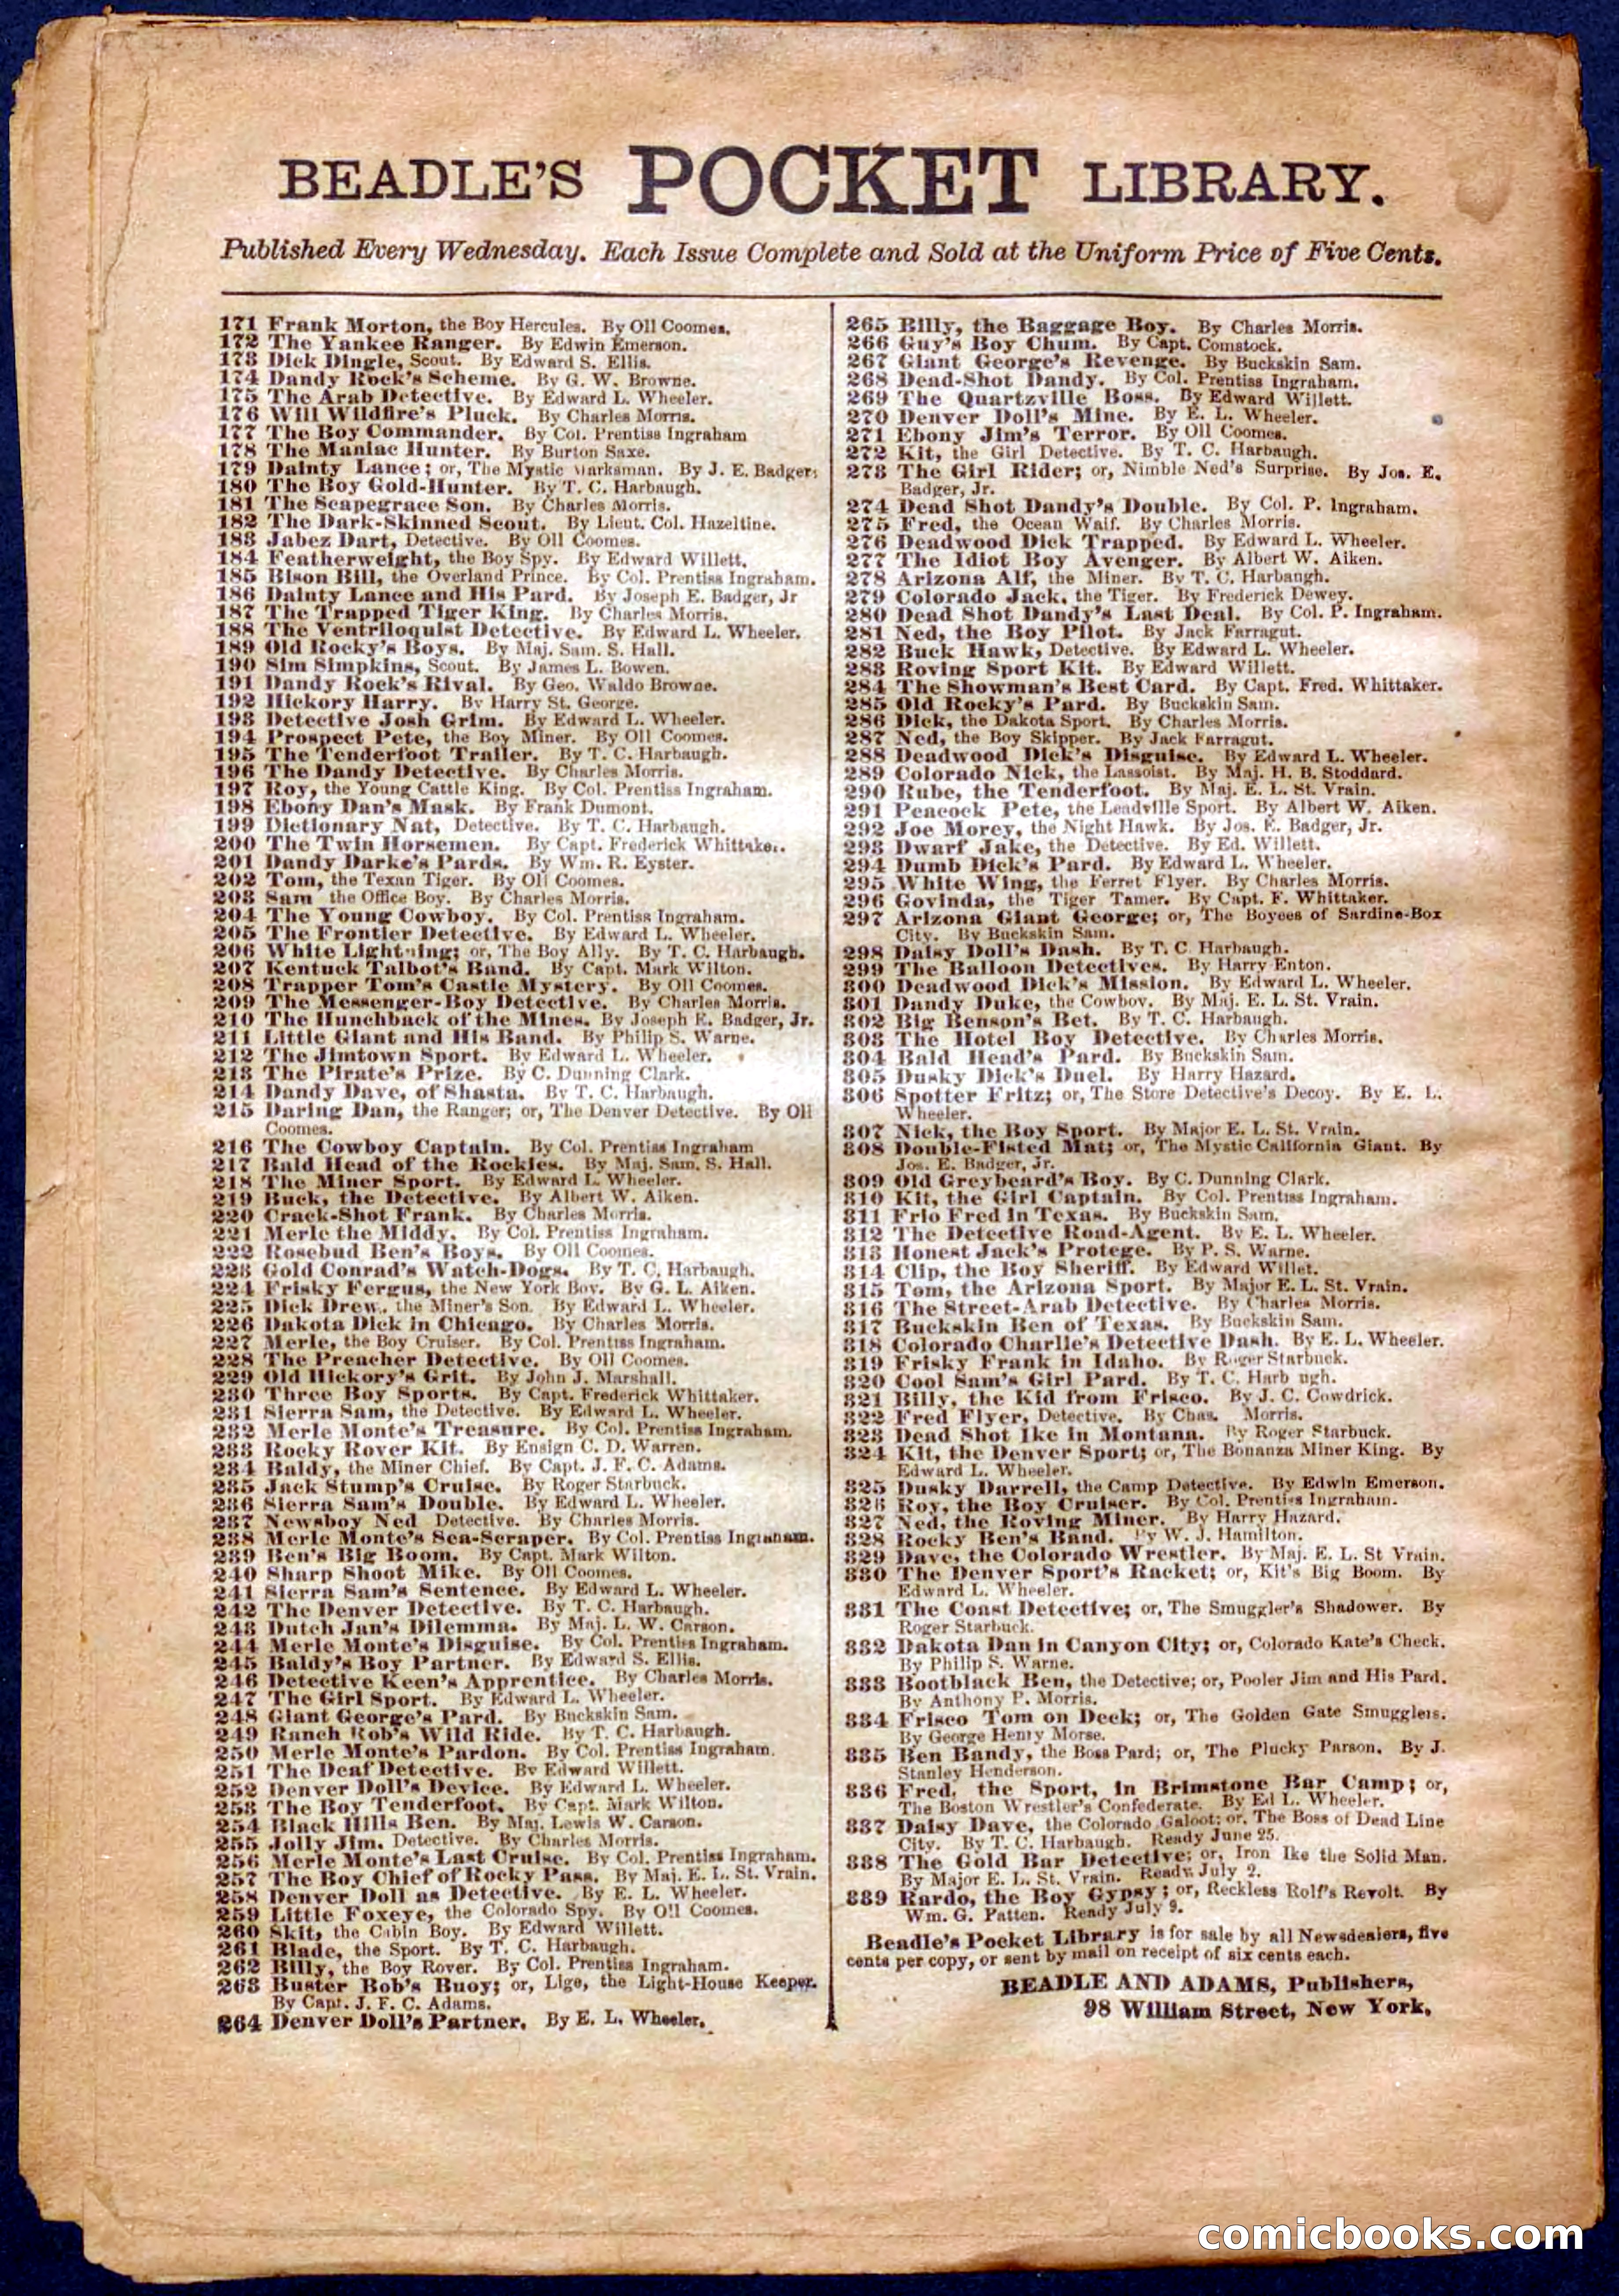 BEADLE'S POCKET LIBRARY.
Published Every Wednesday. Each Issue Complete and Sold at the Uniform Price of Five Cents.
171 Frank Morton, the Boy Hercules. By Oll Coomes.
172 The Yankee Ranger. By Edwin Emerson.
173 Dick Dingle, Scout. By Edward S. Ellis.
174 Dandy Rock's Scheme. By G. W. Browne.
175 The Arab Detective. By Edward L. Wheeler.
176 Will Wildfire's Pluck. By Charles Morris.
177 The Boy Commander. By Col. Prentiss Ingraham
178 The Maniac Hunter. By Burton Saxe.
179 Dainty Lance; or, The Mystic Marksman. By J. E. Badger;
180 The Boy Gold-Hunter. By T. C. Harbaugh.
181 The Scapegrace Son. By Charles Morris.
182 The Dark-Skinned Scout. By Lieut. Col. Hazeltine.
183 Jabez Dart, Detective. By Oll Coomes.
184 Featherweight, the Boy Spy. By Edward Willett.
185 Bison Bill, the Overland Prince. By Col. Prentiss Ingraham.
186 Dainty Lance and His Pard. By Joseph E. Badger, Jr
187 The Trapped Tiger King. By Charles Morris.
188 The Ventriloquist Detective. By Edward L. Wheeler.
189 Old Rocky's Boys. By Maj. Sam. S. Hall.
190 Sim Simpkins, Scout. By James L. Bowen.
191 Dandy Rock's Rival. By Geo. Waldo Browne.
192 Hickory Harry. By Harry St. George.
193 Detective Josh Grim. By Edward L. Wheeler.
194 Prospect Pete, the Boy Miner. By Oll Coomes.
195 The Tenderfoot Trailer. By T. C. Harbaugh.
196 The Dandy Detective. By Charles Morris.
197 Roy, the Young Cattle King. By Col. Prentiss Ingraham.
198 Ebony Dan's Mask. By Frank Dumont.
199 Dictionary Nat, Detective. By T. C. Harbaugh.
200 The Twin Horsemen. By Capt. Frederick Whittaker.
201 Dandy Darke's Pards. By Wm. R. Eyster.
202 Tom, the Texan Tiger. By Oll Coomes.
203 Sam the Office Boy. By Charles Morris.
204 The Young Cowboy. By Col. Prentiss Ingraham.
205 The Frontier Detective. By Edward L. Wheeler.
206 White Lightning; or, The Boy Ally. By T. C. Harbaugh.
207 Kentuck Talbot's Band. By Capt. Mark Wilton.
208 Trapper Tom's Castle Mystery. By Oll Coomes.
209 The Messenger-Boy Detective. By Charles Morris.
210 The Hunchback of the Mines. By Joseph E. Badger, Jr.
211 Little Giant and His Band. By Philip S. Warne.
212 The Jimtown Sport. By Edward L. Wheeler.
213 The Pirate's Prize. By C. Dunning Clark.
214 Dandy Dave, of Shasta. By T. C. Harbaugh.
215 Daring Dan, the Ranger; or, The Denver Detective. By Oll
Coomes.
216 The Cowboy Captain. By Col. Prentiss Ingraham
217 Bald Head of the Rockies. By Maj. Sam. S. Hall.
218 The Miner Sport. By Edward L. Wheeler.
219 Buck, the Detective. By Albert W. Aiken.
220 Crack-Shot Frank. By Charles Morris.
221 Merle the Middy. By Col. Prentiss Ingraham.
222 Rosebud Ben's Boys. By Oll Coomes.
223 Gold Conrad's Watch-Dogs. By T. C. Harbaugh.
224 Frisky Fergus, the New York Boy. By G. L. Aiken.
225 Dick Drew, the Miner's Son. By Edward L. Wheeler.
226 Dakota Dick in Chicago. By Charles Morris.
227 Merle, the Boy Cruiser. By Col. Prentiss Ingraham.
228 The Preacher Detective. By Oll Coomes.
229 Old Hickory's Grit. By John J. Marshall.
230 Three Boy Sports. By Capt. Frederick Whittaker.
231 Sierra Sam, the Detective. By Edward L. Wheeler.
232 Merle Monte's Treasure. By Col. Prentiss Ingraham.
233 Rocky Rover Kit. By Ensign C. D. Warren.
234 Baldy, the Miner Chief. By Capt. J. F. C. Adams.
235 Jack Stump's Cruise. By Roger Starbuck.
236 Sierra Sam's Double. By Edward L. Wheeler.
237 Newsboy Ned Detective. By Charles Morris.
238 Merle Monte's Sea-Scraper. By Col. Prentiss Ingraham.
239 Ben's Big Boom. By Capt. Mark Wilton.
240 Sharp Shoot Mike. By Oll Coomes.
241 Sierra Sam's Sentence. By Edward L. Wheeler.
242 The Denver Detective. By T. C. Harbaugh.
243 Dutch Jan's Dilemma. By Maj. L. W. Carson.
244 Merle Monte's Disguise. By Col. Prentiss Ingraham.
245 Baldy's Boy Partner. By Edward S. Ellis.
246 Detective Keen's Apprentice. By Charles Morris.
247 The Girl Sport. By Edward L. Wheeler.
248 Giant George's Pard. By Buckskin Sam.
249 Ranch Rob's Wild Ride. By T. C. Harbaugh.
250 Merle Monte's Pardon. By Col. Prentiss Ingraham.
251 The Deaf Detective. By Edward Willett.
252 Denver Doll's Device. By Edward L. Wheeler.
253 The Boy Tenderfoot. By Capt. Mark Wilton.
254 Black Hills Ben. By Maj. Lewis W. Carson.
255 Jolly Jim, Detective. By Charles Morris.
256 Merle Monte's Last Cruise. By Col. Prentiss Ingraham.
257 The Boy Chief of Rocky Pass. By Maj. E. L. St. Vrain.
258 Denver Doll as Detective. By E. L. Wheeler.
259 Little Foxeye, the Colorado Spy. By Oll Coomes.
260 Skit, the Cabin Boy. By Edward Willett.
261 Blade, the Sport. By T. C. Harbaugh.
262 Billy, the Boy Rover. By Col. Prentiss Ingraham.
263 Buster Bob's Buoy; or, Lige, the Light-House Keeper.
By Capt. J. F. C. Adams.
264 Denver Doll's Partner. By E. L. Wheeler.
265 Billy, the Baggage Boy. By Charles Morris.
266 Guy's Boy Chum. By Capt. Comstock.
267 Giant George's Revenge. By Buckskin Sam.
268 Dead-Shot Dandy. By Col. Prentiss Ingraham.
269 The Quartzville Boss. By Edward Willett.
270 Denver Doll's Mine. By E. L. Wheeler.
271 Ebony Jim's Terror. By Oll Coomes.
272 Kit, the Girl Detective. By T. C. Harbaugh.
273 The Girl Rider; or, Nimble Ned's Surprise. By Jos. E.
Badger, Jr.
274 Dead Shot Dandy's Double. By Col. P. Ingraham.
275 Fred, the Ocean Waif. By Charles Morris.
276 Deadwood Dick Trapped. By Edward L. Wheeler.
277 The Idiot Boy Avenger. By Albert W. Aiken.
278 Arizona Alf, the Miner. By T. C. Harbaugh.
279 Colorado Jack, the Tiger. By Frederick Dewey.
280 Dead Shot Dandy's Last Deal. By Col. P. Ingraham.
281 Ned, the Boy Pilot. By Jack Farragut.
282 Buck Hawk, Detective. By Edward L. Wheeler.
283 Roving Sport Kit. By Edward Willett.
284 The Showman's Best Card. By Capt. Fred. Whittaker.
285 Old Rocky's Pard. By Buckskin Sam.
286 Dick, the Dakota Sport. By Charles Morris.
287 Ned, the Boy Skipper. By Jack Farragut.
288 Deadwood Dick's Disguise. By Edward L. Wheeler.
289 Colorado Nick, the Lassoist. By Maj. H. B. Stoddard.
290 Rube, the Tenderfoot. By Maj. E. L. St. Vrain.
291 Peacock Pete, the Leadville Sport. By Albert W. Aiken.
292 Joe Morey, the Night Hawk. By Jos. E. Badger, Jr.
293 Dwarf Jake, the Detective. By Ed. Willett.
294 Dumb Dick's Pard. By Edward L. Wheeler.
295 White Wing, the Ferret Flyer. By Charles Morris.
296 Govinda, the Tiger Tamer. By Capt. F. Whittaker.
297 Arizona Giant George; or, The Boyees of Sardine-Box
City. By Buckskin Sam.
298 Daisy Doll's Dash. By T. C. Harbaugh.
299 The Balloon Detectives. By Harry Enton.
300 Deadwood Dick's Mission. By Edward L. Wheeler.
301 Dandy Duke, the Cowboy. By Maj. E. L. St. Vrain.
302 Big Benson's Bet. By T. C. Harbaugh.
303 The Hotel Boy Detective. By Charles Morris.
304 Bald Head's Pard. By Buckskin Sam.
305 Dusky Dick's Duel. By Harry Hazard.
306 Spotter Fritz; or, The Store Detective's Decoy. By E. L.
Wheeler.
307 Nick, the Boy Sport. By Major E. L. St. Vrain.
308 Double-Fisted Mat; or, The Mystic California Giant. By
Jos. E. Badger, Jr.
309 Old Greybeard's Boy. By C. Dunning Clark.
310 Kit, the Girl Captain. By Col. Prentiss Ingraham.
311 Frio Fred in Texas. By Buckskin Sam.
312 The Detective Road-Agent. By E. L. Wheeler.
313 Honest Jack's Protege. By P. S. Warne.
314 Clip, the Boy Sheriff. By Edward Willet.
315 Tom, the Arizona Sport. By Major E. L. St. Vrain.
316 The Street-Arab Detective. By Charles Morris.
317 Buckskin Ben of Texas. By Buckskin Sam.
318 Colorado Charlie's Detective Dash. By E. L. Wheeler.
319 Frisky Frank in Idaho. By Roger Starbuck.
320 Cool Sam's Girl Pard. By T. C. Harb ugh.
321 Billy, the Kid from Frisco. By J. C. Cowdrick.
322 Fred Flyer, Detective. By Chas. Morris.
323 Dead Shot Ike in Montana. By Roger Starbuck.
324 Kit, the Denver Sport; or, The Bonanza Miner King. By
Edward L. Wheeler.
325 Dusky Darrell, the Camp Detective. By Edwin Emerson.
326 Roy, the Boy Cruiser. By Col. Prentiss Ingraham.
327 Ned, the Roving Miner. By Harry Hazard.
328 Rocky Ben's Band. By W. J. Hamilton.
329 Dave, the Colorado Wrestler. By Maj. E. L. St Vrain.
330 The Denver Sport's Racket; or, Kit's Big Boom. By
Edward L. Wheeler.
331 The Coast Detective; or, The Smuggler's Shadower. By
Roger Starbuck.
332 Dakota Dan in Canyon City; or, Colorado Kate's Check.
By Philip S. Warne.
333 Bootblack Ben, the Detective; or, Pooler Jim and His Pard.
By Anthony P. Morris.
334 Frisco Tom on Deck; or, The Golden Gate Smugglers.
By George Henry Morse.
335 Ben Bandy, the Boss Pard; or, The Plucky Parson. By J.
Stanley Henderson.
336 Fred, the Sport, in Brimstone Bar Camp; or,
The Boston Wrestler's Confederate. By Ed L. Wheeler.
337 Daisy Dave, the Colorado Galoot; or, The Boss of Dead Line
City. By T. C. Harbaugh. Ready June 25.
338 The Gold Bar Detective; or, Iron Ike the Solid Man.
By Major E. L. St. Vrain. Ready July 2.
339 Rardo, the Boy Gypsy; or, Reckless Rolf's Revolt. By
Wm. G. Patten. Ready July 9.
Beadle's Pocket Library is for sale by all Newsdealers, five
cents per copy, or sent by mail on receipt of six cents each.
BEADLE AND ADAMS, Publishers,
98 William Street, New York.
comicbooks.com